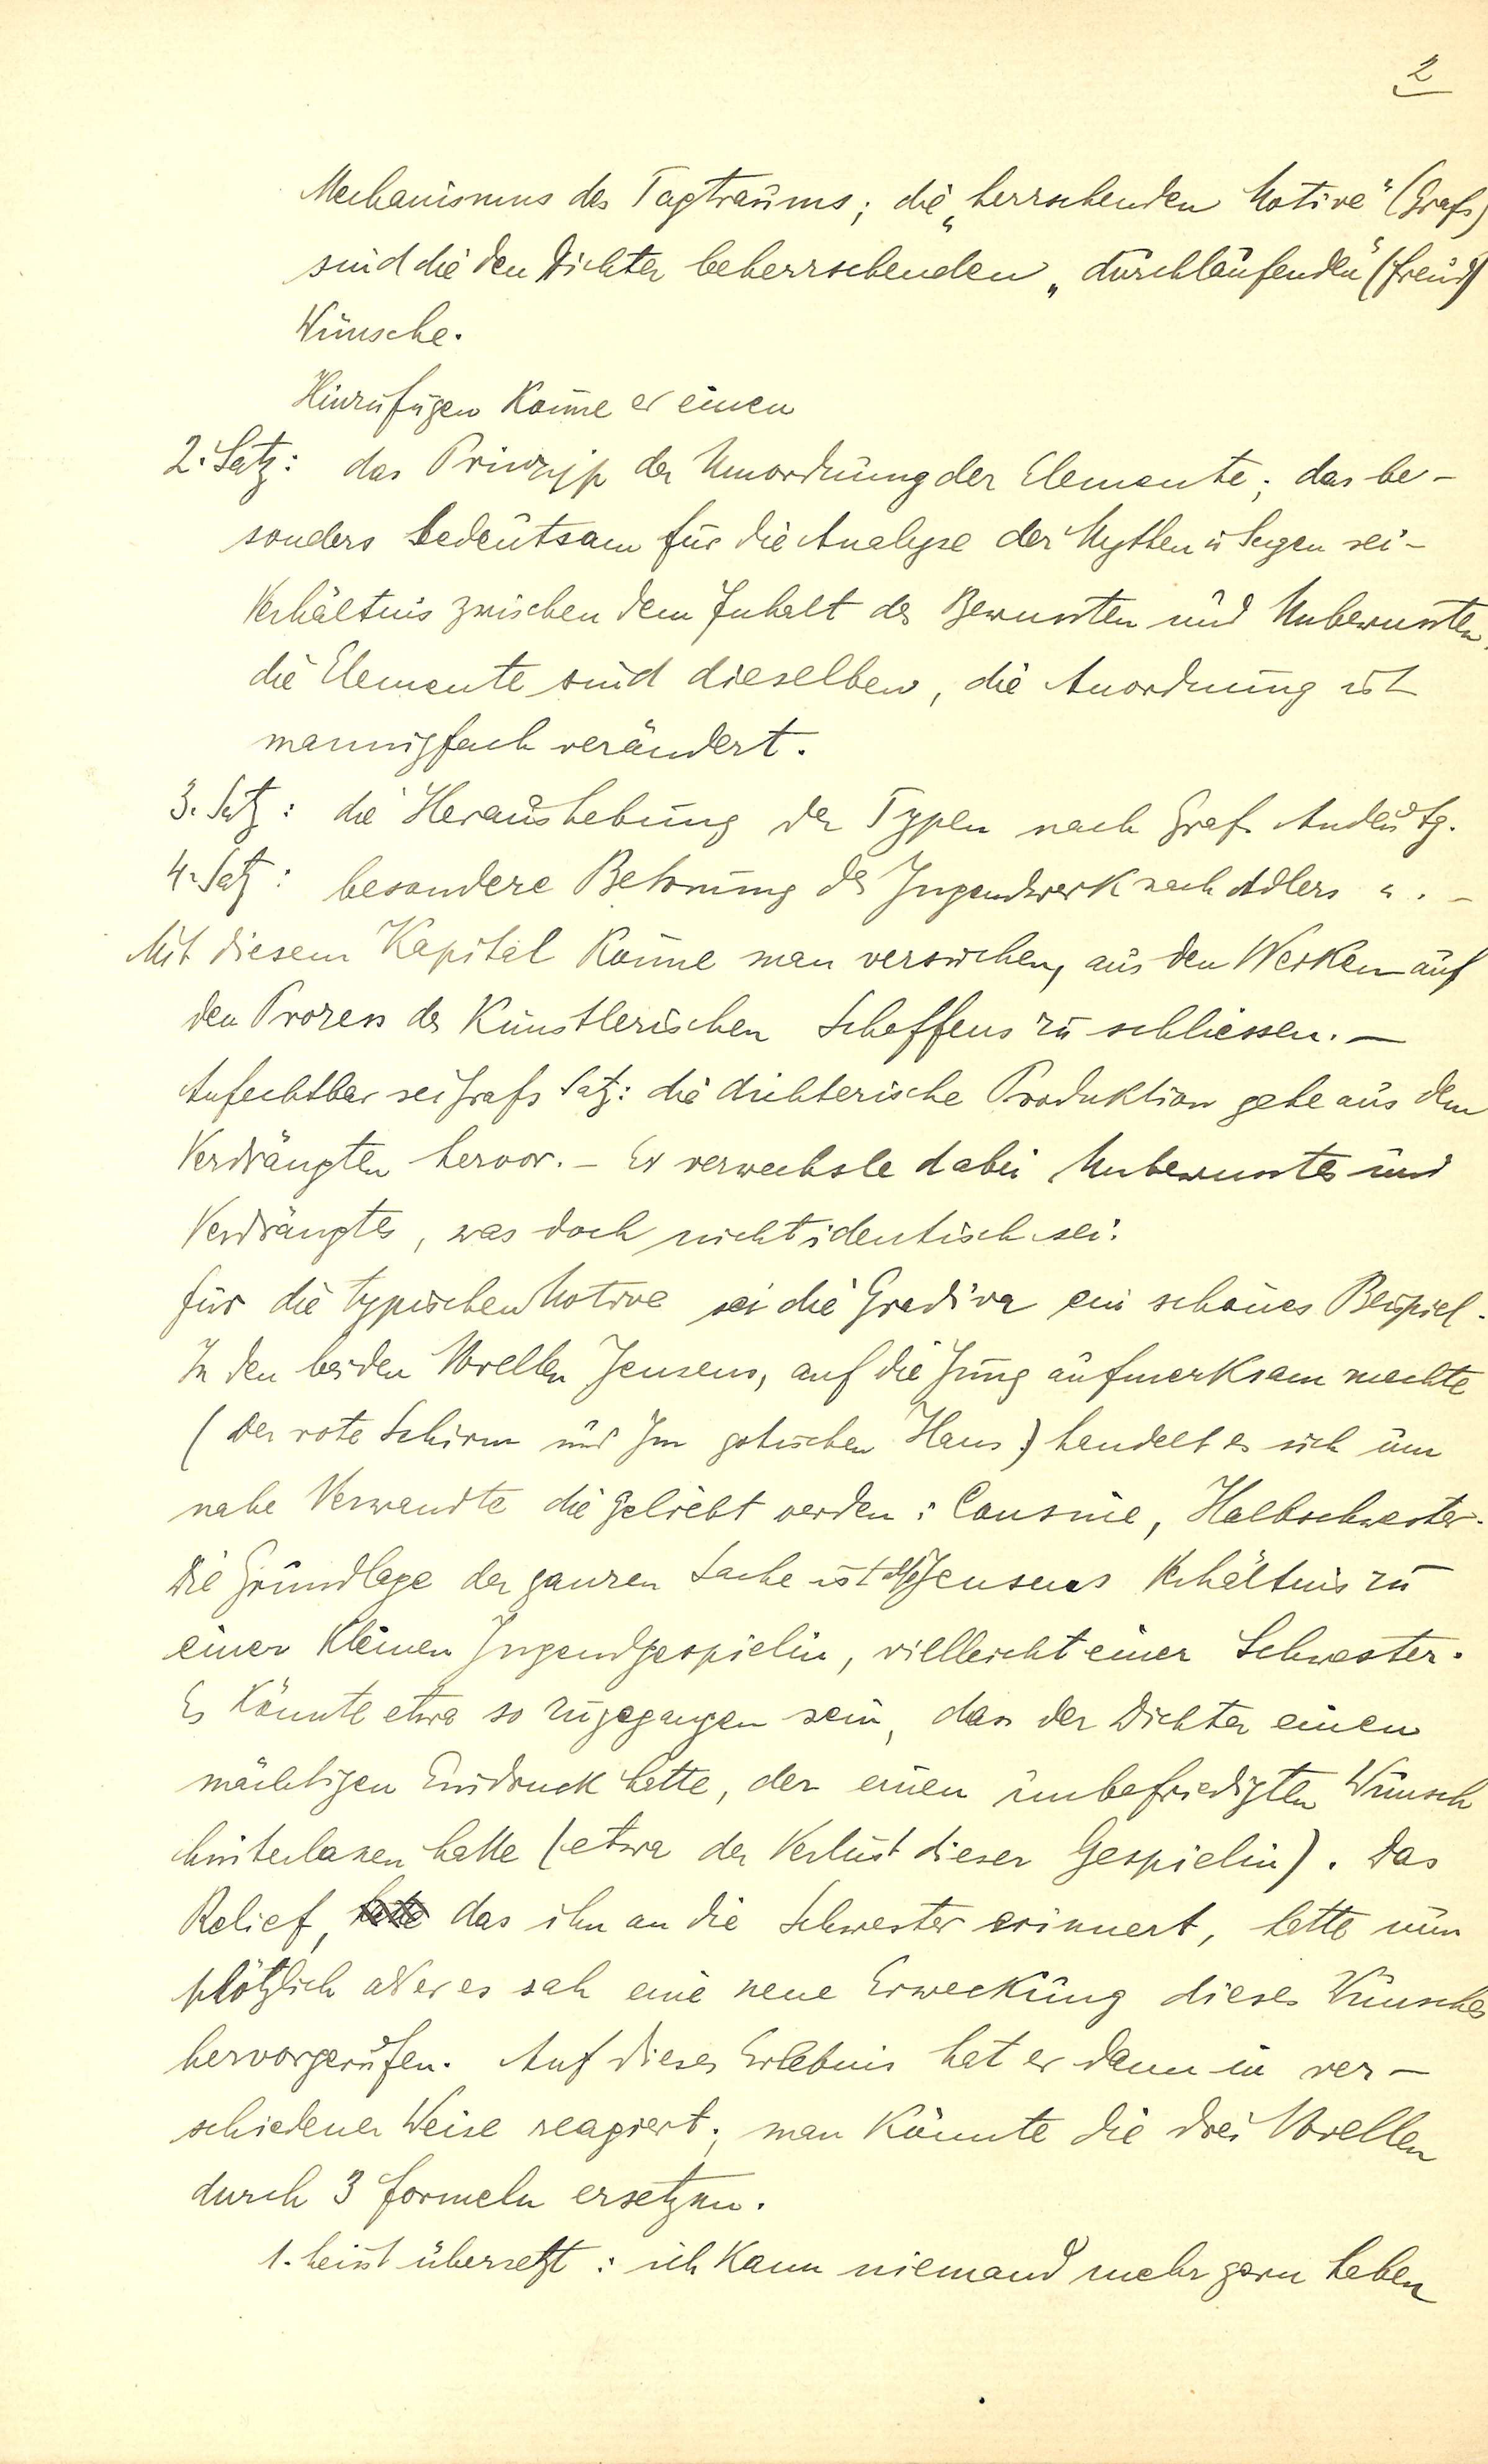 2
Mechanismus des Tagtraums; die „herrschenden Motive“ (Grafs)
sind die den Dichter beherrschenden „durchlaufenden“ (Freud)
Wünsche.
Hinzufügen könne er einen
2. Satz: das Prinzip der Umordnung der Elemente; das be-
sonders bedeutsam für die Analyse der Mythen u Sagen sei –
Verhältnis zwischen dem Inhalt des Bewussten und Unbewussten,
die Elemente sind dieselben, die Anordnung ist
mannigfach verändert.
3. Satz: die Heraushebung der Typen nach Grafs Andeutg.
4. Satz: besondere Betonung des Jugendwerk nach Adlers „. –
Mit diesem Kapital könne man versuchen, aus den Werken auf
den Prozess des künstlerischen Schaffens zu schliessen. –
Anfechtbar sei Grafs Satz: die dichterische Produktion gehe aus dem
Verdrängten hervor. – Er verwechsle dabei Unbewusstes und
Verdrängtes, was doch nicht identisch sei.
Für die typischen Motive sei die Gradiva ein schönes Beispiel.
In den beiden Novellen Jensens, auf die Jung aufmerksam machte
(Der rote Schirm und Im gotischen Haus) handelt es sich um
nahe Verwandte die geliebt werden: Cousine, Halbschwester.
Die Grundlage der ganzen Sache ist Jensens Verhältnis zu
einer kleinen Jugendgespielin, vielleicht einer Schwester.
Es könnte etwa so zugegangen sein, dass der Dichter einen
mächtigen Eindruck hatte, der einen unbefriedigten Wunsch
hinterlassen hatte (etwa der Verlust dieser Gespielin). Das
Relief, das ihn an die Schwester erinnert, hatte nun
plötzlich als er es sah eine neue Erweckung dieses Wunsches
hervorgerufen. Auf dieses Erlebnis hat er dann in ver-
schiedener Weise reagiert; man könnte die drei Novellen
durch 3 Formeln ersetzen.
1. heisst übersetzt: ich kann niemand mehr gern haben